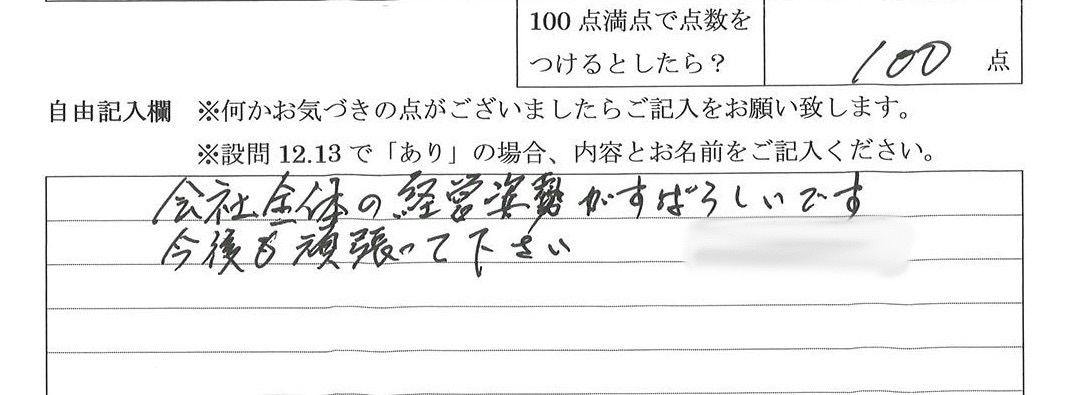 100点満点で点数を
つけるとしたら？
100 点
自由記入欄 ※何かお気づきの点がございましたらご記入をお願い致します。
※設問12.13で「あり」の場合、内容とお名前をご記入ください。
会社全体の経営姿勢がすばらしいです
今後も頑張って下さい